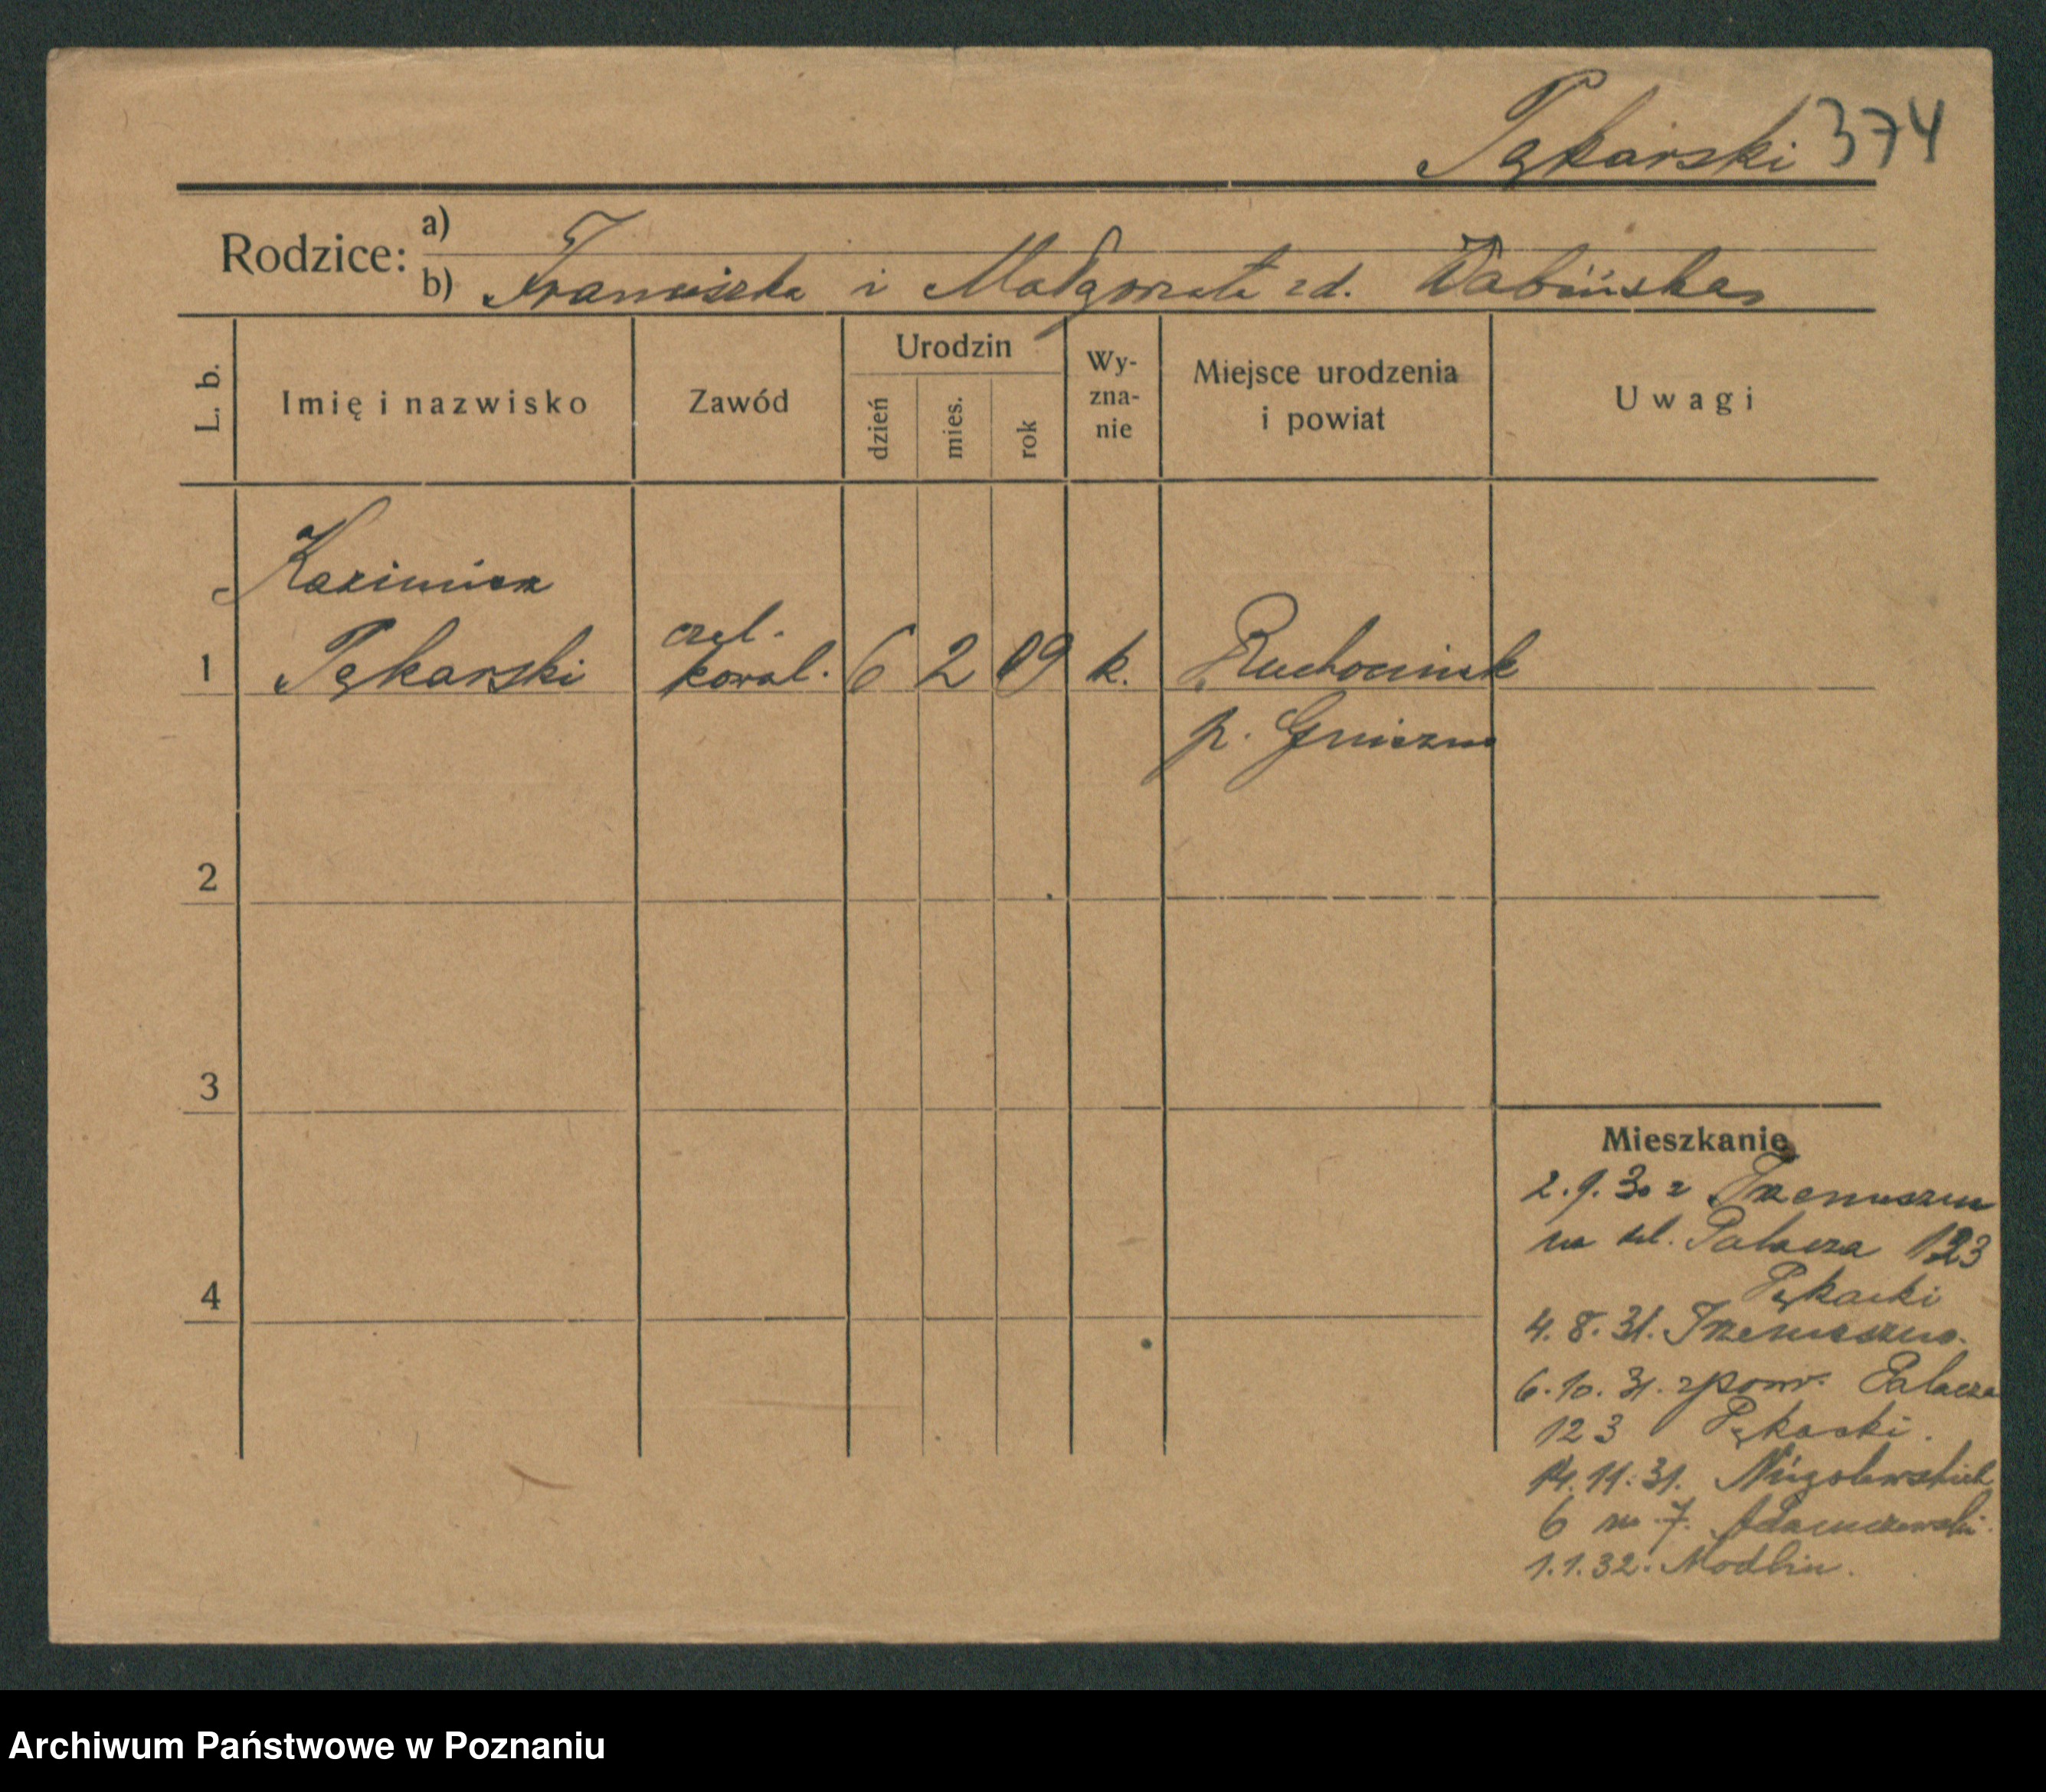 Pękarski 374
Rodzice:
a)
b) Franciszka i Małgorzata zd. Wabińska
L. b.
Imię i nazwisko
Zawód
Urodzin
dzień
mies.
rok
Wy-
zna-
nie
Miejsce urodzenia
i powiat
Uwagi
Kazimierz
1 Pękarski
czel.
kowal. 6 2 09 k. Ruchocinek
p. Gniezno
2
3
4
Mieszkanie
2.9.30 z Trzemeszna
na ul. Palacza 123
Pękarki
4.8.31. Trzemeszno.
6.10.31. zpow. Palacza
123 Pękarki.
14.11.31.
6 m. 7. Adamczewski.
1.1.32. Modlin.
Archiwum Państwowe w Poznaniu